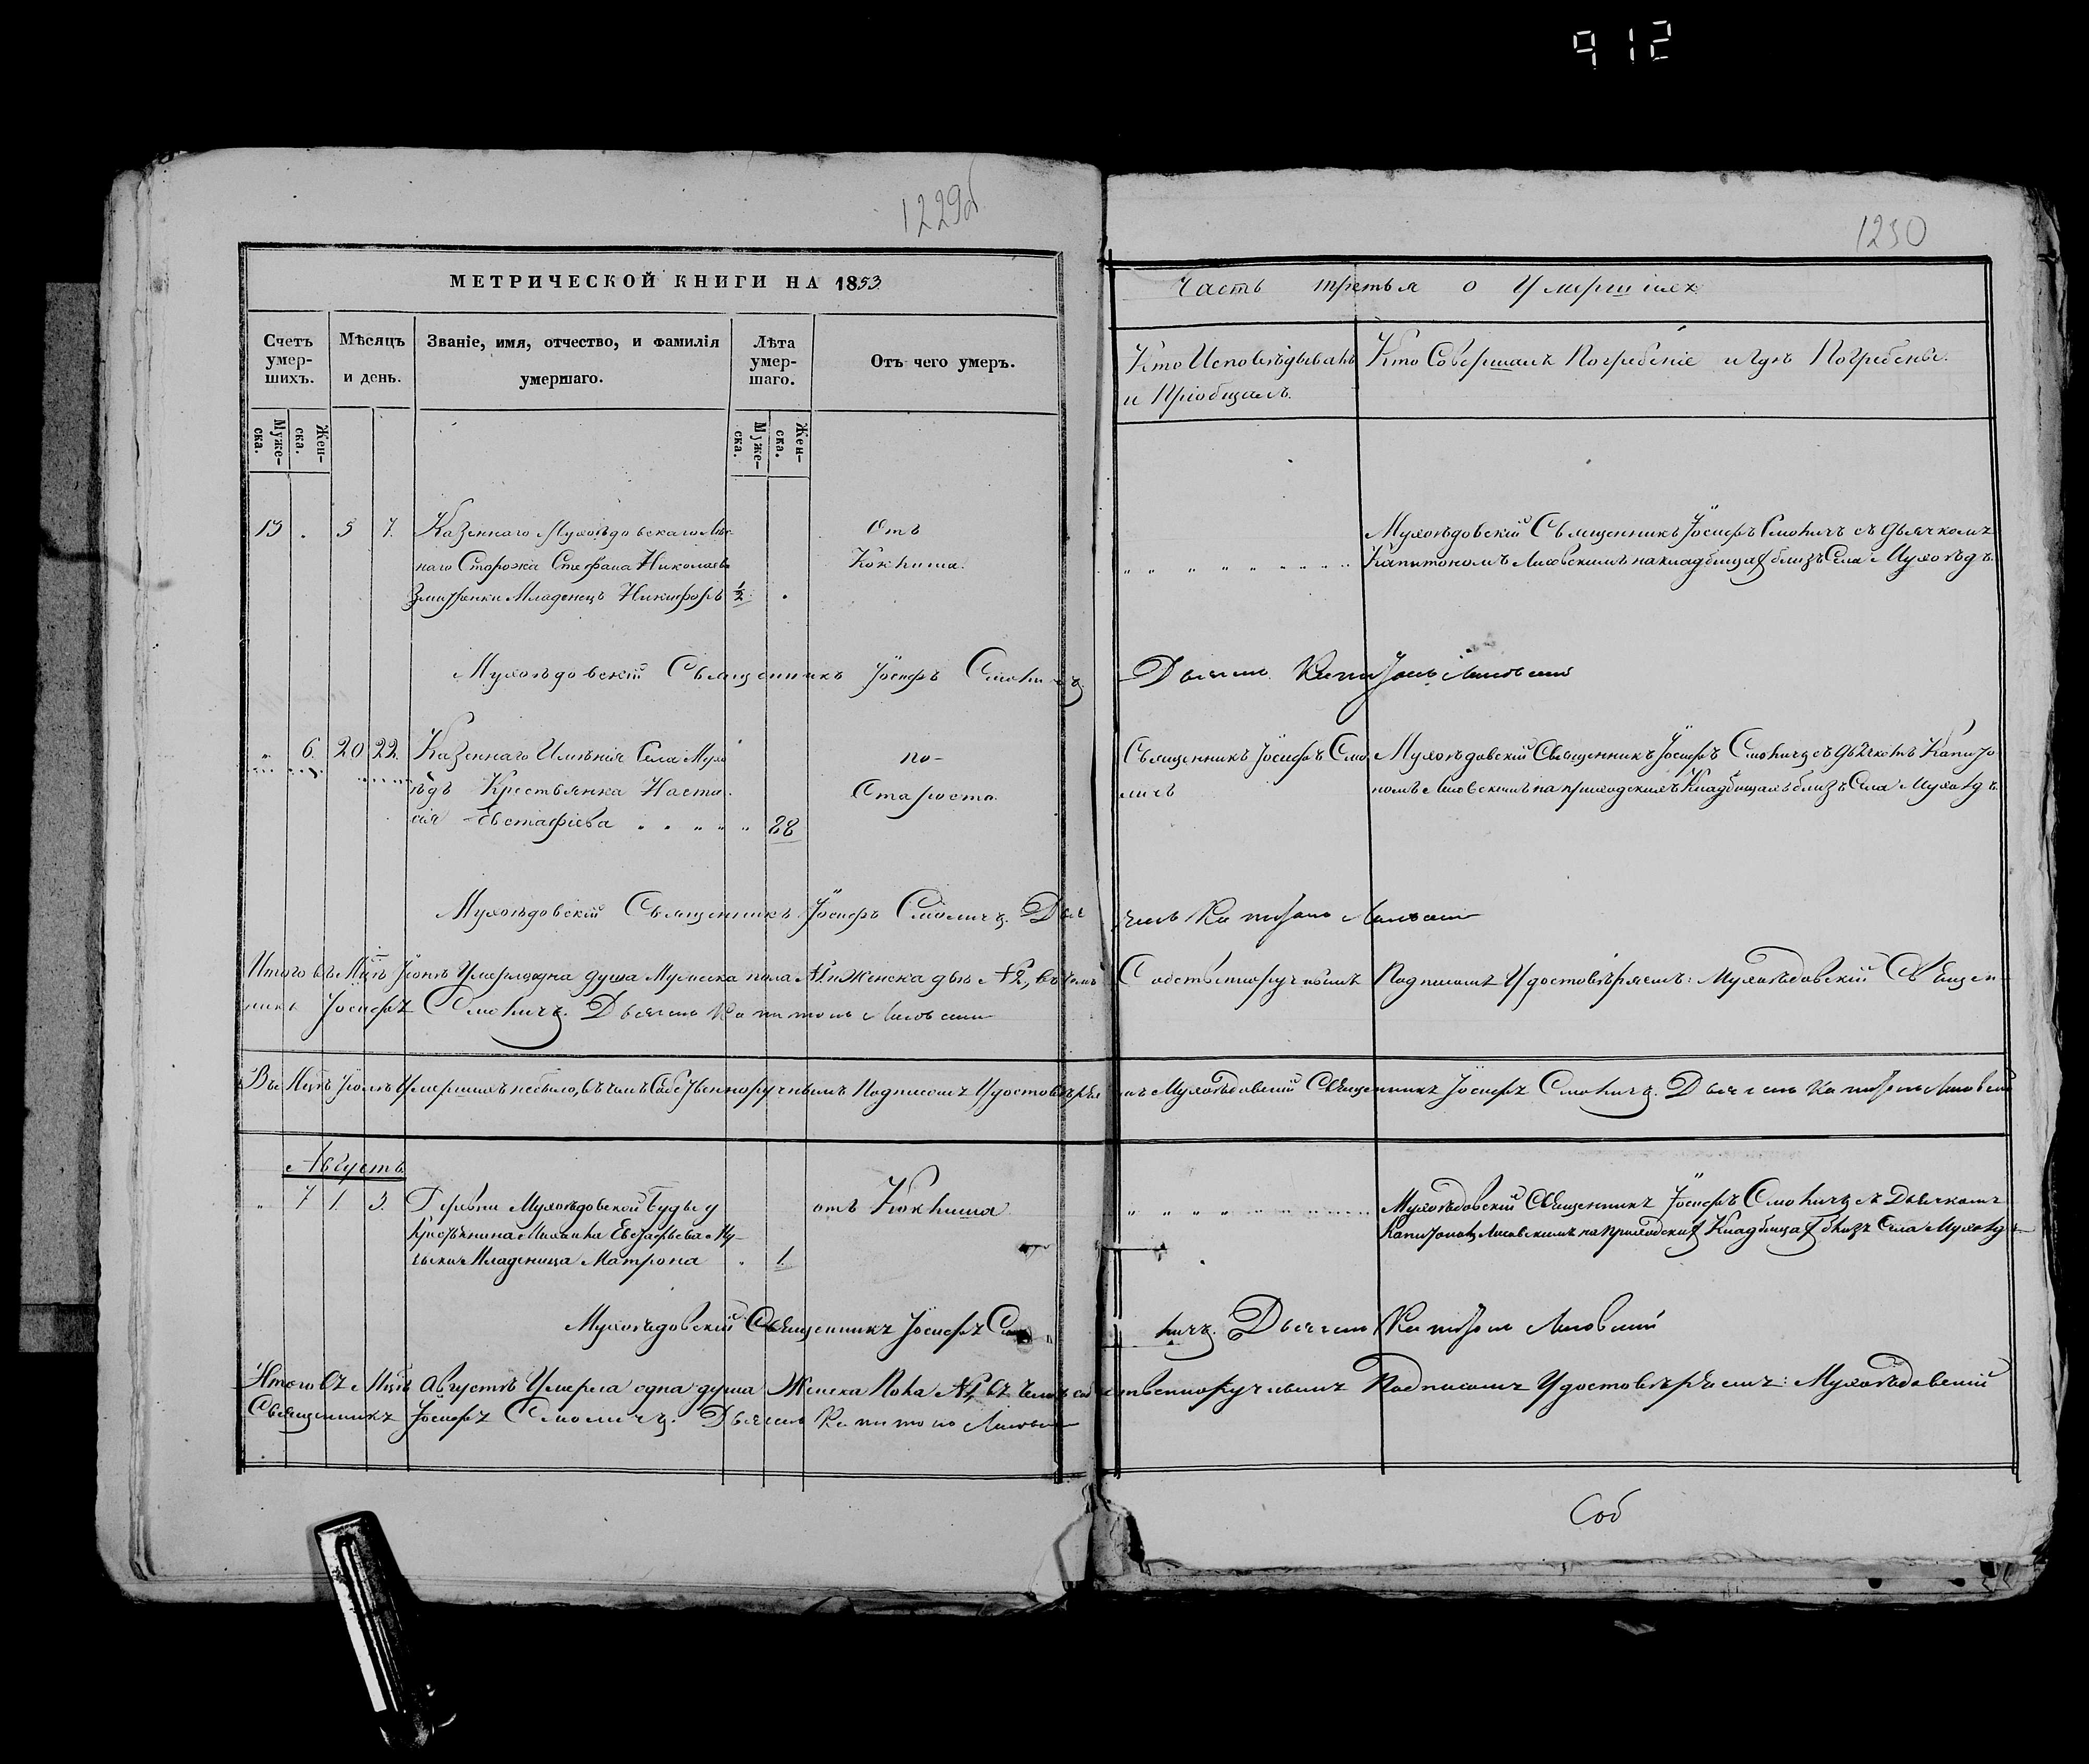 912
1229об
1230
МЕТРИЧЕСКОЙ КНИГИ НА 1853
Часть третья о Умершихъ
Счетъ умер-шихъ.
Мѣсяцъ и день.
Званіе, имя, отчество, и фамилія умершаго.
Лѣта умер-шаго.
Отъ чего умеръ.
Кто Исповѣдывалъ и Пріобщалъ.
Кто Совершалъ Погребеніе и гдѣ Погребены.
Муже-ска.
Жен-ска.
Муже-ска.
Жен-ска.
13 . 5 7. Казеннаго Мухоѣдовскаго Лѣс
наго Сторожа Стефана Николаева
Младенецъ Никифоръ ½ .
Отъ
Коклюша.
Мухоѣдовскій Священникъ Іосифъ Смоличъ съ Дьячкомъ
Капитономъ Лисовскимъ на кладбищахъ близъ Села Мухоѣдъ.
Мухоѣдовскій Священникъ Іосифъ Смоличъ
Дьячекъ Капитонъ Лисовскій
" 6. 20 22. Казеннаго Имѣнія Села Мухо
ѣдъ Крестьянка Наста
сія Евстафіева " " " " 88
по-
Старости.
Священникъ Іосифъ Смо
личъ
Мухоѣдовскій Священникъ Іосифъ Смоличъ съ Дьячкомъ Капито
номъ Лисовскимъ на приходскихъ Кладбищахъ близъ Села Мухоѣдъ.
Мухоѣдовскій Священникъ Іосифъ Смоличъ. Дья
чекъ Капитонъ Лисовскій
Итого въ Мцѣ Іюнѣ Умерло одна душа Мужеска пола №1. и Женска двѣ №2, въ чемъ Собственноручнымъ Подписомъ Удостовѣряемъ: Мухоѣдовскій Священ
никъ Іосифъ Смоличъ. Дьячекъ Капитонъ Лисовскій
Въ Мцѣ Іюлѣ Умершихъ небыло, въ чемъ Собственноручнымъ Подписомъ Удостовѣряемъ Мухоѣдовскій Священникъ Іосифъ Смоличъ. Дьячекъ Капитонъ Лисовскій
Августъ
" 7 1. 3. Деревни Мухоѣдовской Буды
Крестьянина Михаила Евстафьева
Младеница Матрона . 1.
отъ Коклюша
Мухоѣдовскій Священникъ Іосифъ Смоличъ съ Дьячкомъ
Капитономъ Лисовскимъ на приходскихъ Кладбищахъ близъ Села Мухоѣдъ
Мухоѣдовскій Священникъ Іосифъ Смо
личъ. Дьячекъ Капитонъ Лисовскій
Итого въ Мцѣ Августѣ Умерла одна душа Женска Пола №1. въ чемъ собственноручнымъ Подписомъ Удостовѣряемъ: Мухоѣдовскій
Священникъ Іосифъ Смоличъ. Дьячекъ Капитонъ Лисовскій
Соб